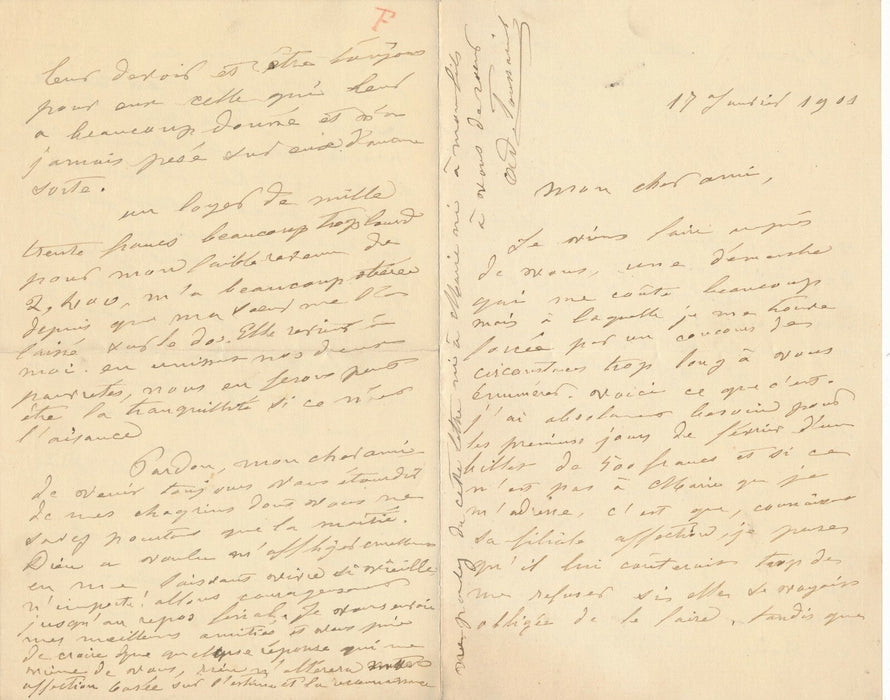 17 Janvier 1901
Mon cher ami,
Je viens faire auprès
de vous, une démarche
qui me coûte beaucoup
mais à laquelle je me trouve
forcée par un concours de
circonstances trop long à vous
énumérer. Voici ce que c'est.
j'ai absolument besoin pour
les premiers jours de février d'un
billet de 500 francs et si ce
n'est pas à Marie que je
m'adresse, c'est que, connaissant
sa filiale affection, je pense
qu'il lui coûterait trop de
me refuser si elle se voyait
obligée de le faire, tandis que
leur devoir et être toujours
pour eux celle qui leur
a beaucoup donné et n'a
jamais pesé sur eux d'aucune
sorte.
un loyer de mille
trente francs beaucoup trop lourd
pour mon faible revenu de
m'a beaucoup obérée
depuis que ma sœur me l'a
laissé sur le dos. Elle revient à
moi. en unissant nos deux
pauvretés, nous en ferons peut
être la tranquillité si ce n'est
l'aisance
Pardon, mon cher ami
de venir toujours vous étourdir
de mes chagrins dont vous ne
savez pourtant que la moitié.
Dieu a voulu m'affliger cruellement
en me laissant vivre si vieille
n'importe! allons courageusement
jusqu'au repos final. Je vous envoie
mes meilleures amitiés et vous prie
de croire que quelque réponse qui me
vienne de vous, rien n'altérera mon
affection basée sur l'estime et la reconnaissance
ne parlez de cette lettre ni à Marie ni à mon fils
à vous de cœur